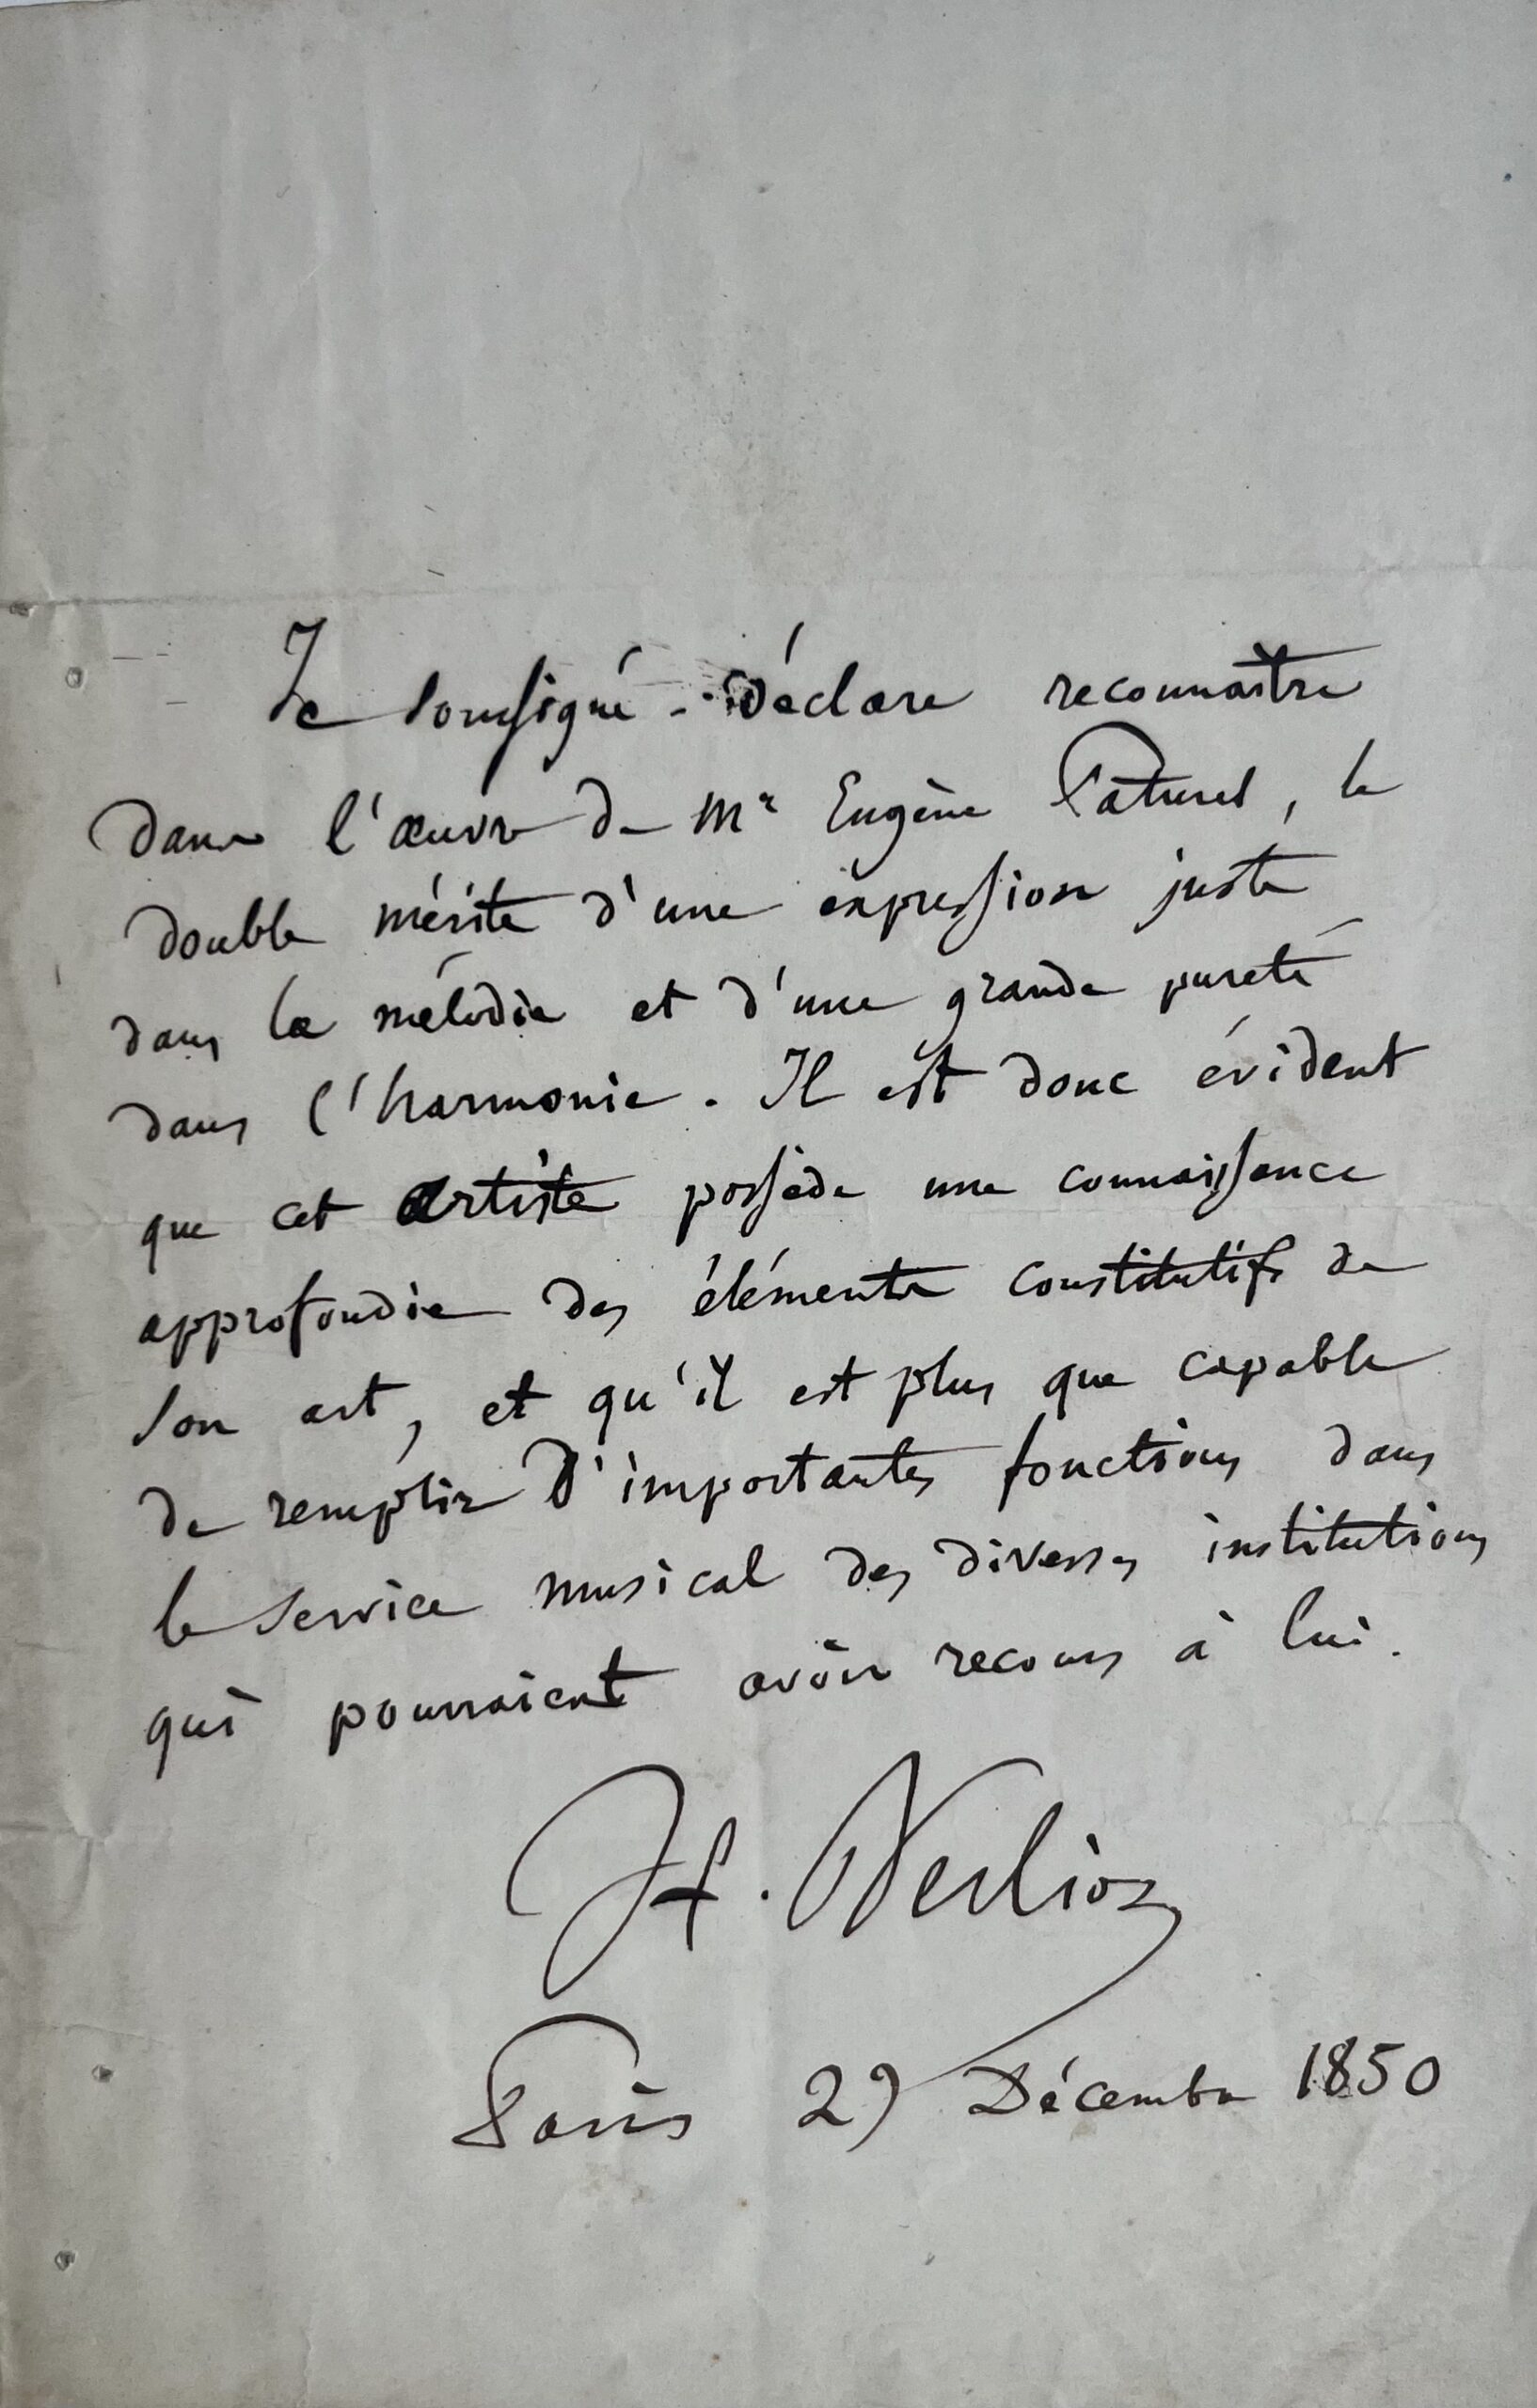 Je soussigné - Déclare reconnaître
dans l'œuvre de Mr Eugène Paturel, le
double mérite d'une expression juste
dans la mélodie et d'une grande pureté
dans l'harmonie. Il est donc évident
que cet artiste possède une connaissance
approfondie des éléments constitutifs de
son art, et qu'il est plus que capable
de remplir d'importantes fonctions dans
le service musical des diverses institutions
qui pourraient avoir recours à lui.
H. Berlioz
Paris 29 Décembre 1850